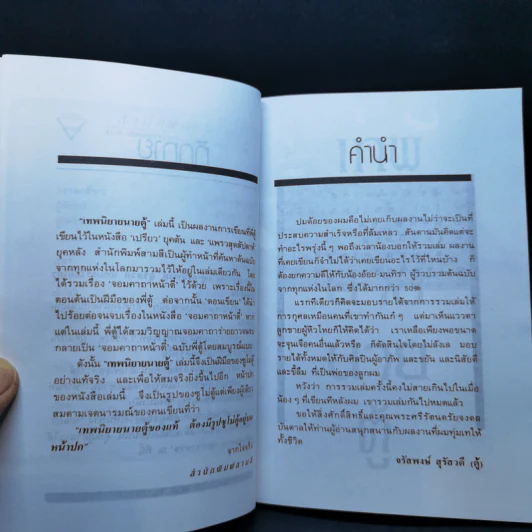 ทักทาย
"เทพนิยายนายตู้" เล่มนี้ เป็นผลงานการเขียนที่พี่ตู้
เขียนไว้ในหนังสือ 'เปรียว' ยุคต้น และ 'แพรวสุดสัปดาห์'
ยุคหลัง สำนักพิมพ์สามสีเป็นผู้ทำหน้าที่ค้นหาต้นฉบับ
จากทุกแห่งในโลกมารวมไว้ให้อยู่ในเล่มเดียวกัน โดย
ได้รวมเรื่อง 'จอมคาถาหน้าตี๋' ไว้ด้วย เพราะเรื่องนี้ใน
ตอนต้นเป็นฝีมือของพี่ตู้ ต่อจากนั้น
ไปร้อยต่อจนจบเรื่องในหนังสือ 'จอมคาถาหน้าตี๋'
แต่ในเล่มนี้ พี่ตู้ได้สวมวิญญาณจอมคาถาร่ายยาวจน
กลายเป็น 'จอมคาถาหน้าตี๋' ฉบับพี่ตู้โดยสมบูรณ์แบบ
ดังนั้น "เทพนิยายนายตู้" เล่มนี้จึงเป็นฝีมือของซูโม่ตู้
อย่างแท้จริง และเพื่อให้สมจริงยิ่งขึ้นไปอีก หน้าปก
ของหนังสือเล่มนี้ จึงเป็นรูปของซูโม่ตู้แต่เพียงผู้เดียว
สมตามเจตนารมณ์ของคนเขียนที่ว่า
"เทพนิยายนายตู้ของแท้ ต้องมีรูปซูโม่ตู้อยู่บน
หน้าปก"
จากใจจริง
สำนักพิมพ์สามสี
คำนำ
ปมด้อยของผมคือไม่เคยเก็บผลงานไม่ว่าจะเป็นที่
ประสบความสำเร็จหรือที่ล้มเหลว สันดานมันคิดแต่จะ
ทำอะไรพรุ่งนี้ ๆ พอถึงเวลาน้องบอกให้รวมเล่ม ผลงาน
ที่เคยเขียนก็จำไม่ได้ว่าเคยเขียนอะไรไว้ที่ไหนบ้าง ก็
ต้องยกความดีให้กับน้องอ้อย มนทิรา ผู้รวบรวมต้นฉบับ
จากทุกแห่งในโลก ซึ่งได้มากกว่า ๖๐%
แรกทีเดียวก็คิดจะมอบรายได้จากการรวมเล่มให้
การกุศลเหมือนคนที่เขาทำกันเก๋ ๆ แต่มาเห็นแววตา
ลูกชายผู้หิวโหยก็ให้คิดได้ว่า เราเหลือเพียงพอขนาด
จะจุนเจือคนอื่นแล้วหรือ ก็ตัดสินใจโดยไม่ลังเล มอบ
รายได้ทั้งหมดให้กับศิลปินผู้อาภัพ และขยัน และนิสัยดี
และขี้ลืม ที่เป็นพ่อของลูกผม
หวังว่า การรวมเล่มครั้งนี้คงไม่สายเกินไปในเมื่อ
น้อง ๆ ที่เขียนทีหลังผม เขารวมเล่มกันไปหมดแล้ว
ขอให้สิ่งศักดิ์สิทธิ์และคุณพระศรีรัตนตรัยจงดล
บันดาลให้ท่านผู้อ่านสนุกสนานกับผลงานที่ผมทุ่มเทให้
ทั้งชีวิต
จรัสพงษ์ สุรัสวดี (ตู้)